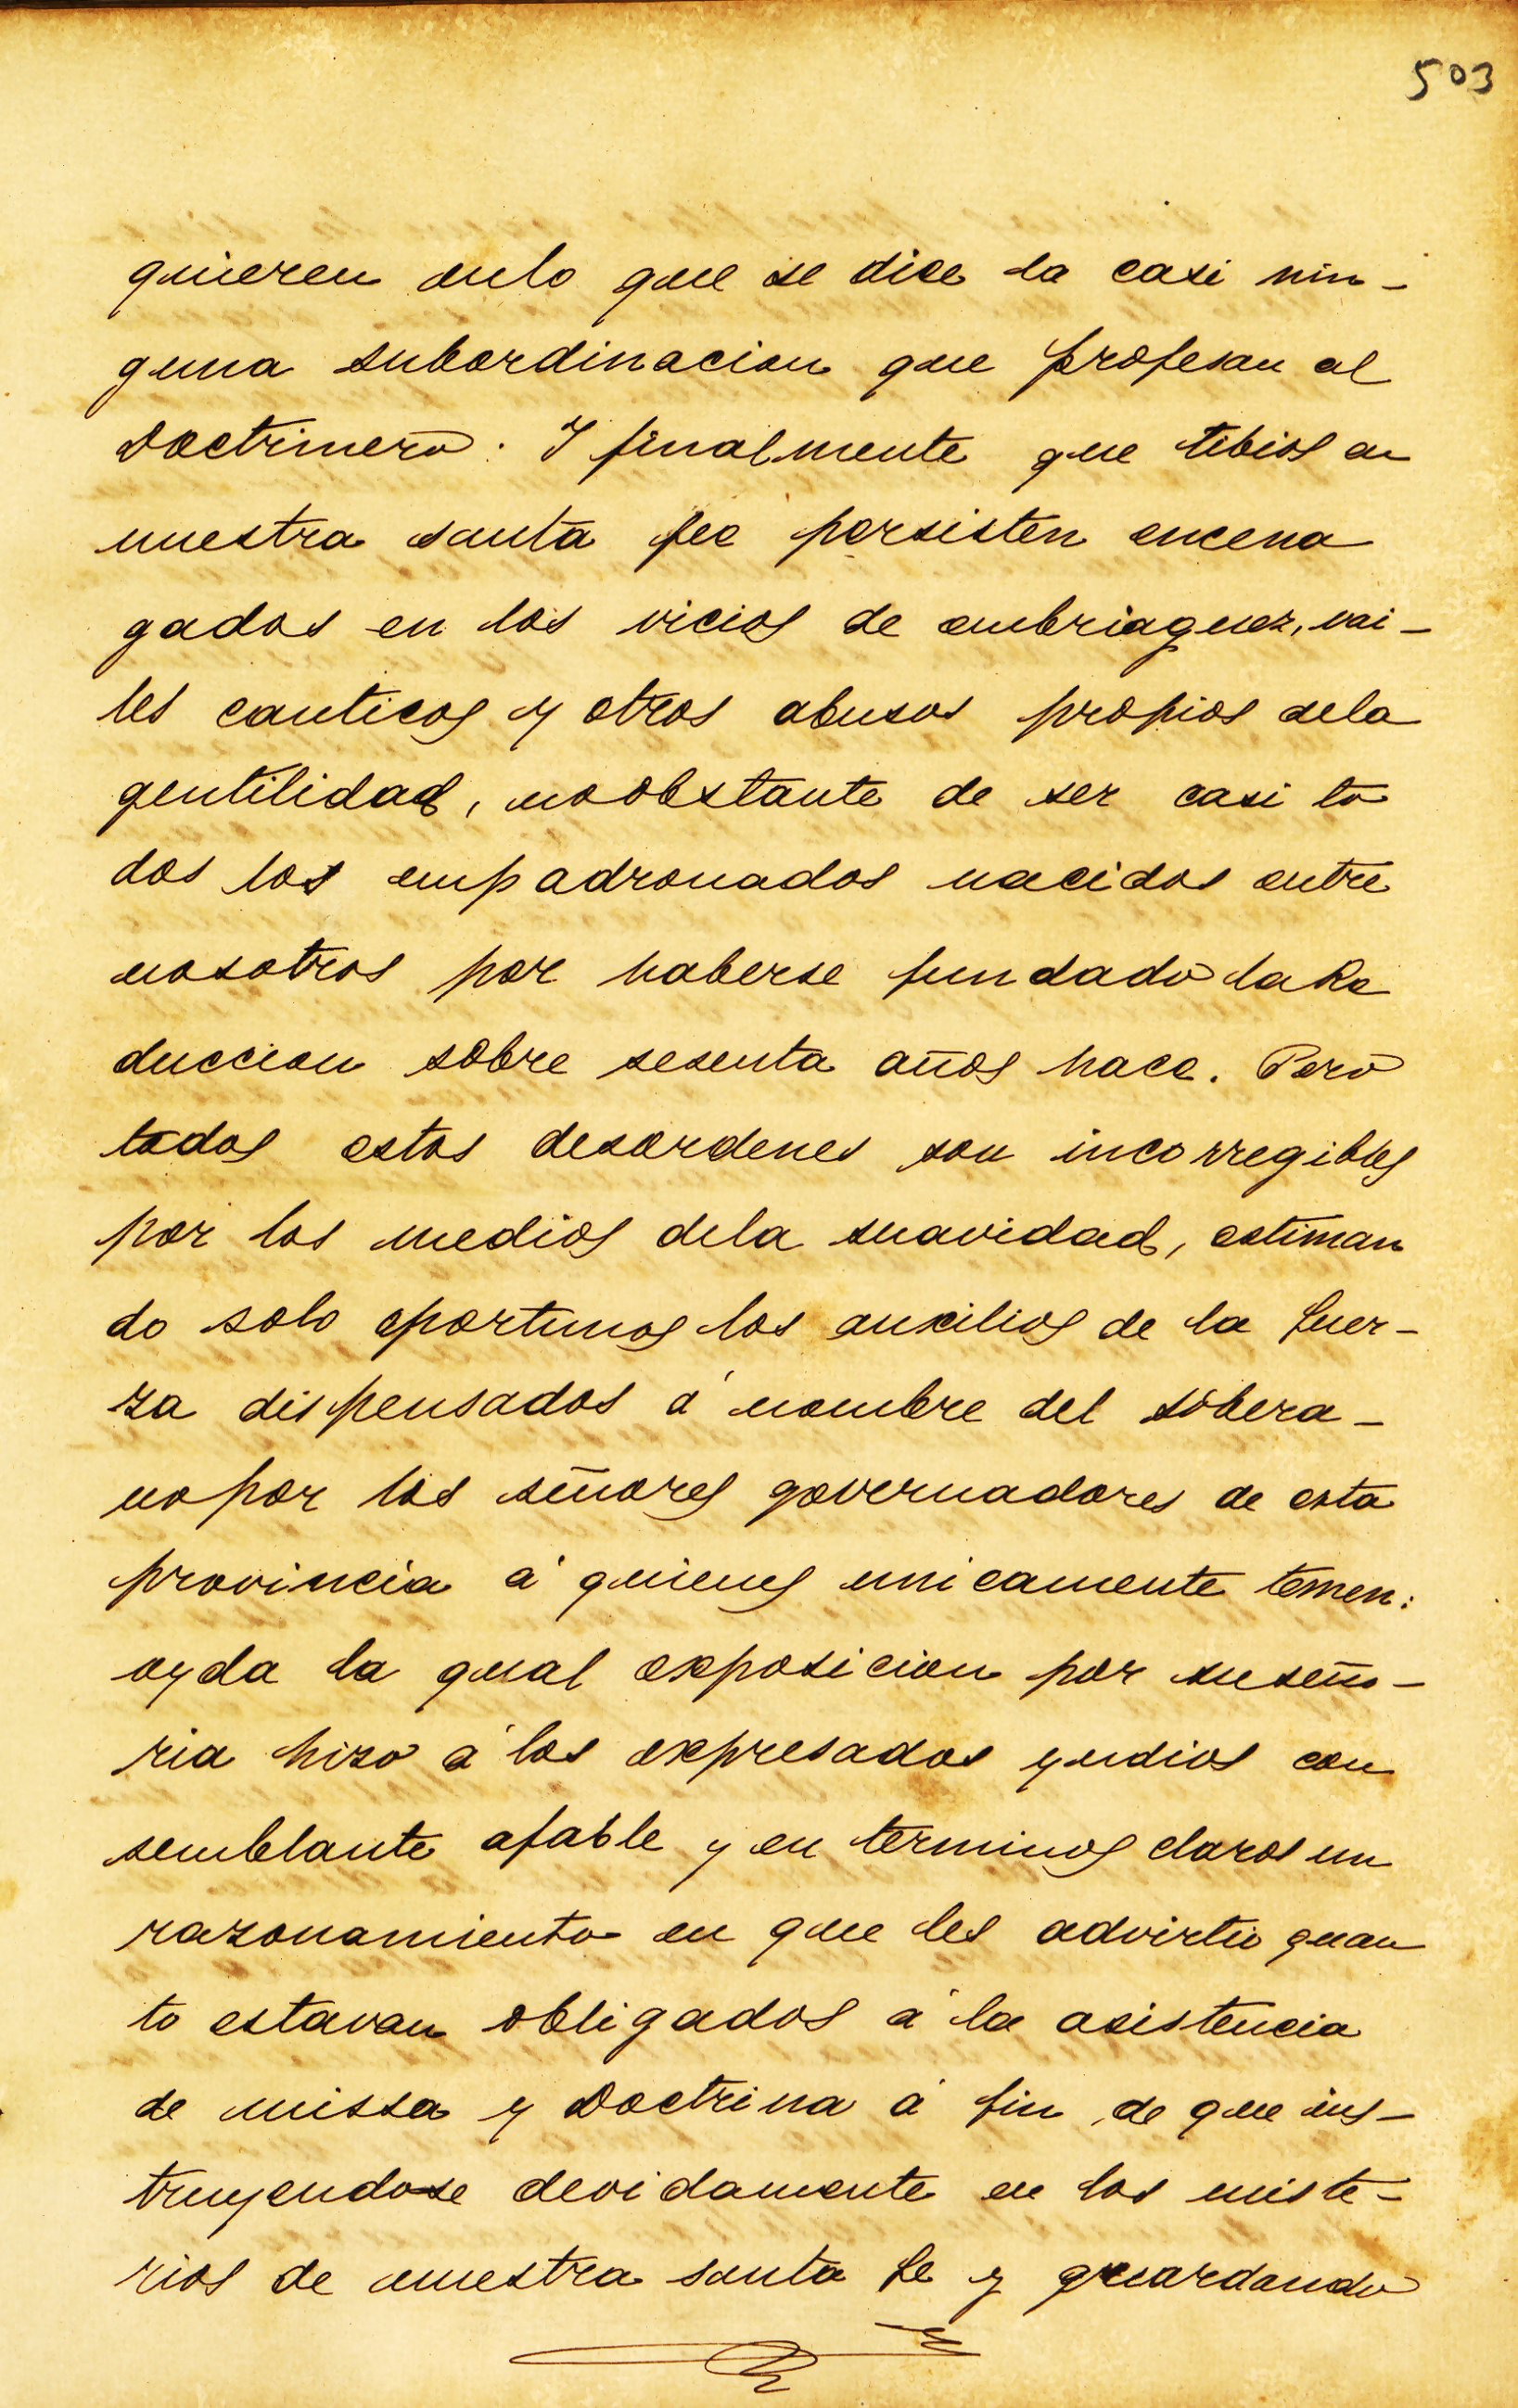 503
quieren enlo que se dice la casi nin-
guna subordinacion que profesan al
Doctrinero. I finalmente que tibios en
nuestra santa fee persisten encena
gados en los vicios de embriaguez, vai-
les canticos y otros abusos propios dela
gentilidad, noobstante de ser casi to
dos los empadronados nacidos entre
nosotros por haberse fundado la Re
duccion sobre sesenta años hace. Pero
todos estos desordenes son incorregibles
por los medios dela suavidad, estiman
do solo oportunos los auxilios de la fuer-
za dispensados á nombre del sobera-
no por los señores governadores de esta
provincia á quienes unicamente temen:
oyda la qual exposicion por su seño-
ria hizo á los expresados yndios con
semblante afable y en terminos claros un
razonamiento en que les advirtio quan
to estavan obligados á la asistencia
de missa y Doctrina á fin de que ins-
truyendose devidamente en los miste-
rios de nuestra santa fe y guardando